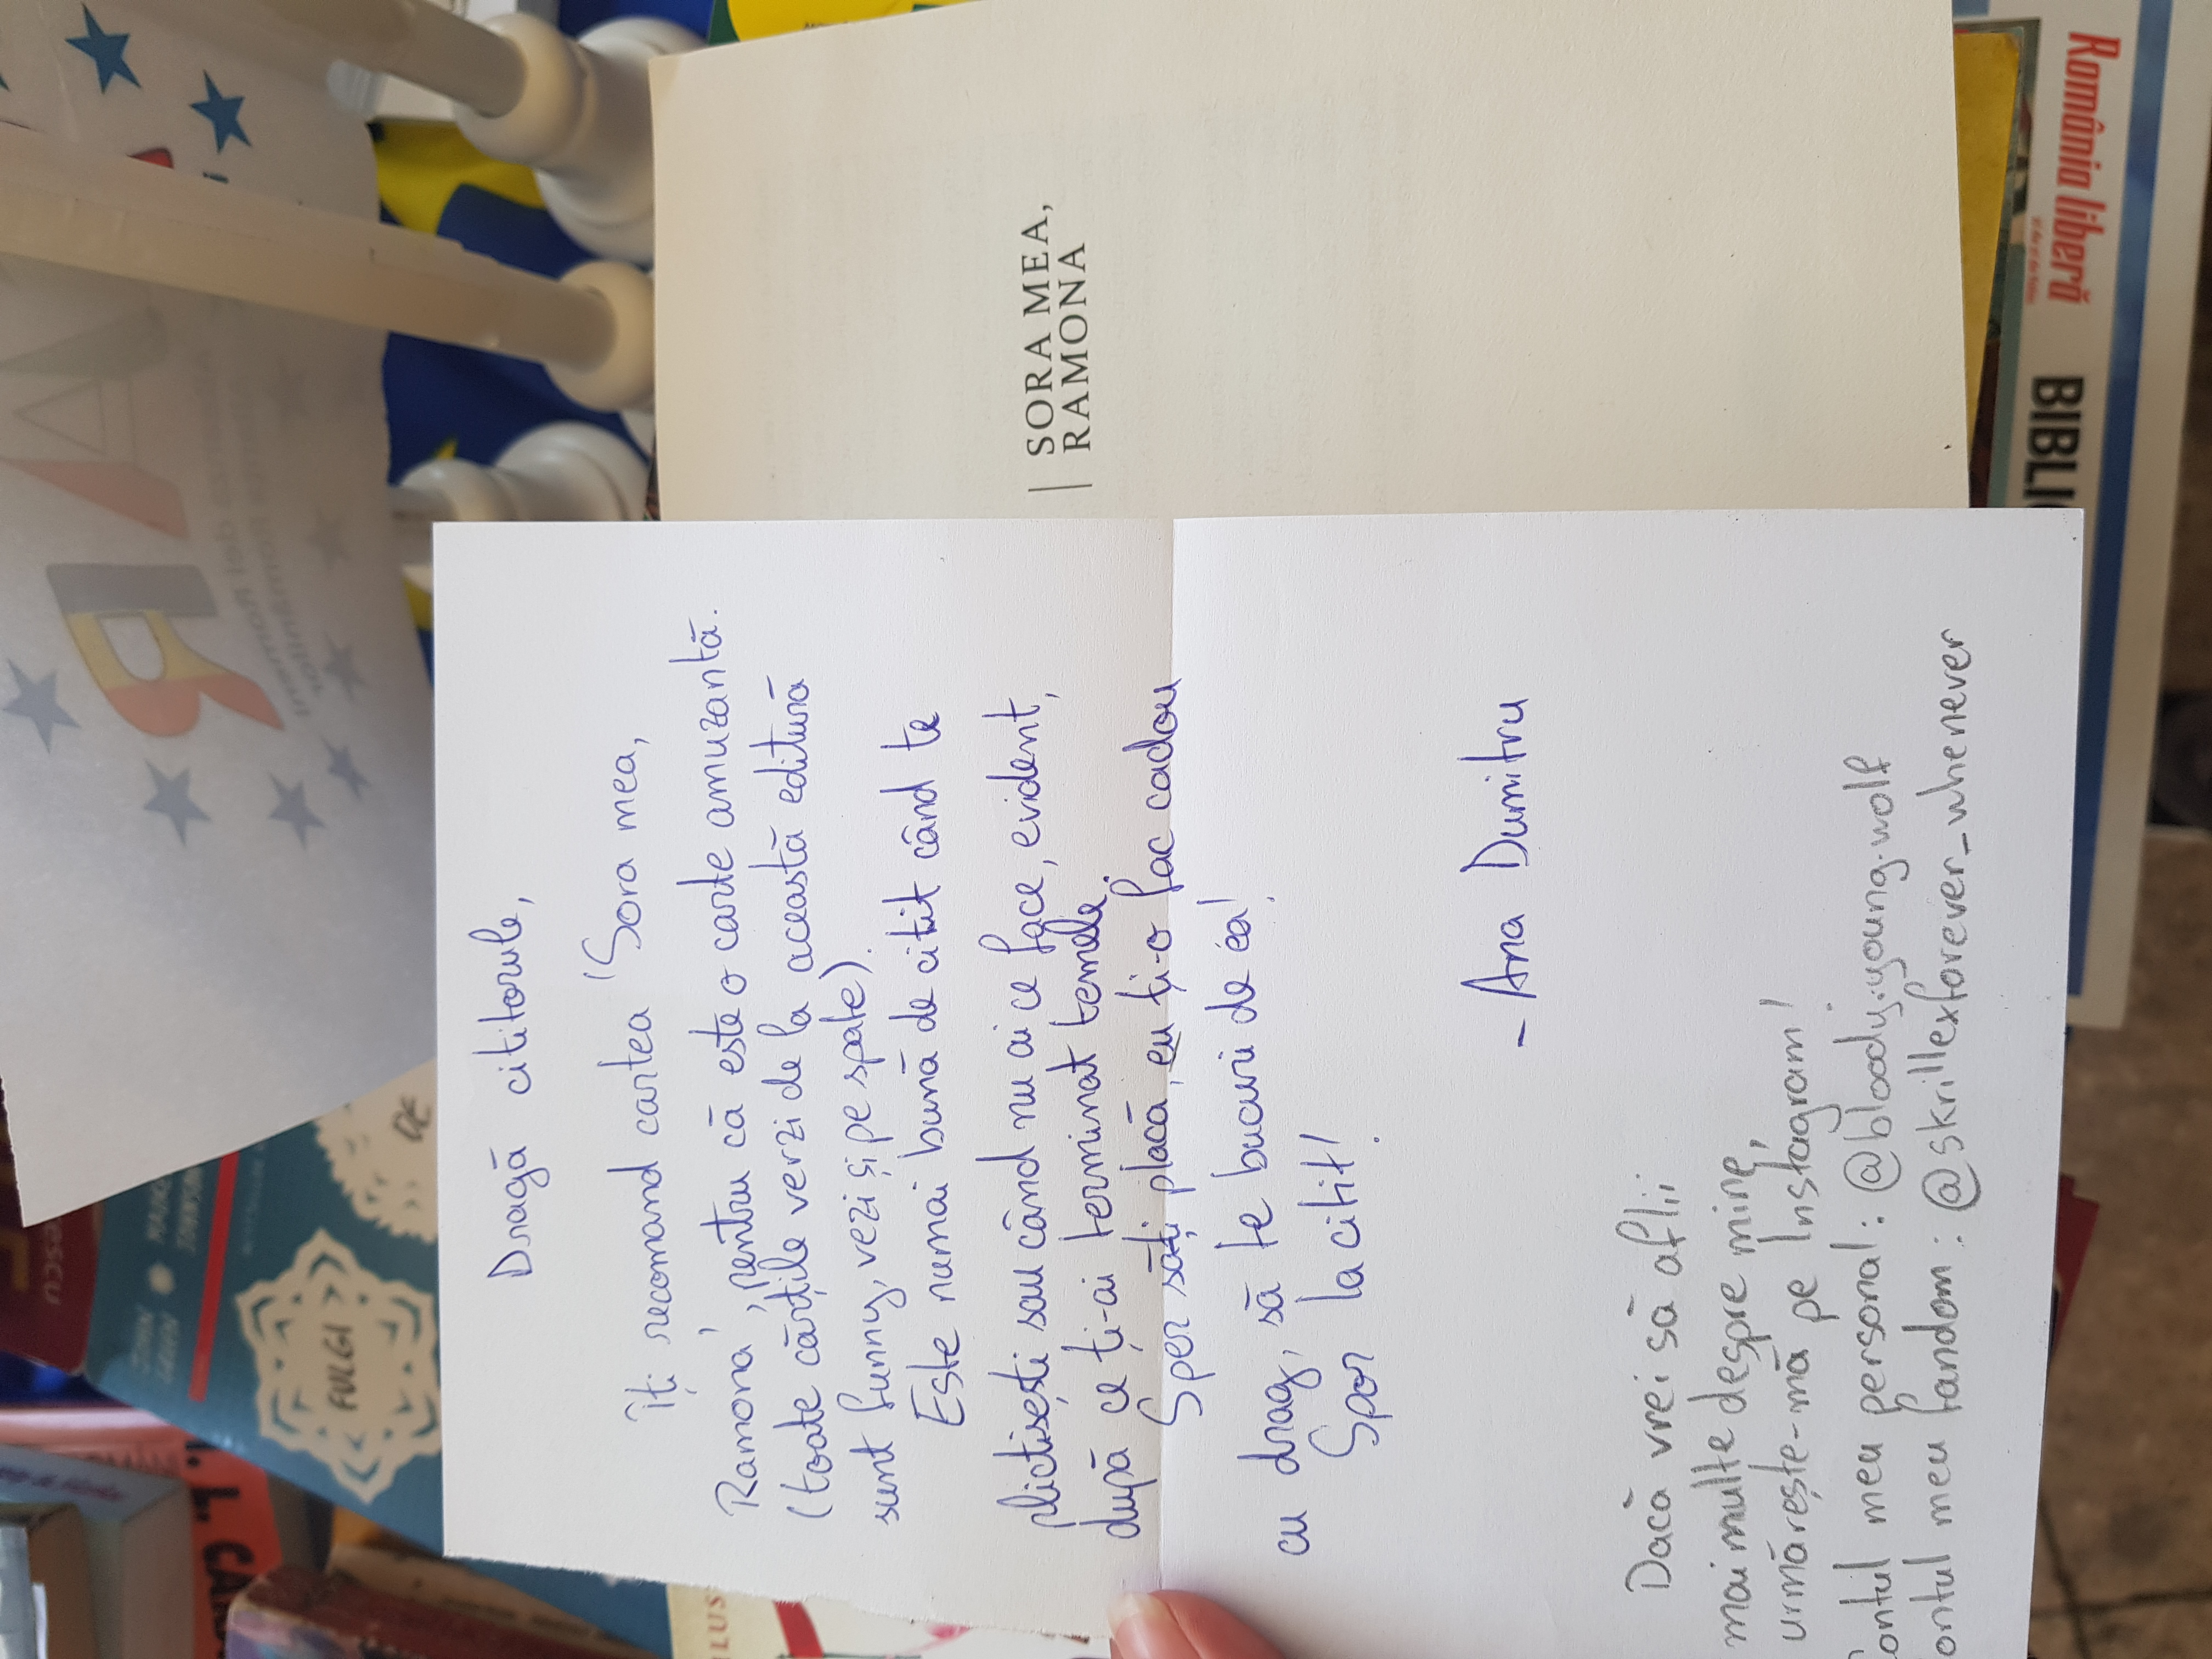 Dragă cititorule,
Îți recomand cartea "Sora mea,
Ramona", pentru că este o carte amuzantă.
(toate cărțile verzi de la această editură
sunt funny, vezi și pe spate).
Este numai bună de citit când te
plictisești sau când nu ai ce face, evident,
după ce ți-ai terminat temele.
Sper săți placă, eu ți-o fac cadou
cu drag, să te bucuri de ea!
Spor la citit!
- Ana Dumitru
Dacă vrei să aflii
mai multe despre mine,
urmărește-mă pe Instagram!
Contul meu personal: @bloody.young.wolf
ontul meu fandom: @skrillexforever_whenever
SORA MEA,
RAMONA
România liberă
BIBLIO
FULGI
DE